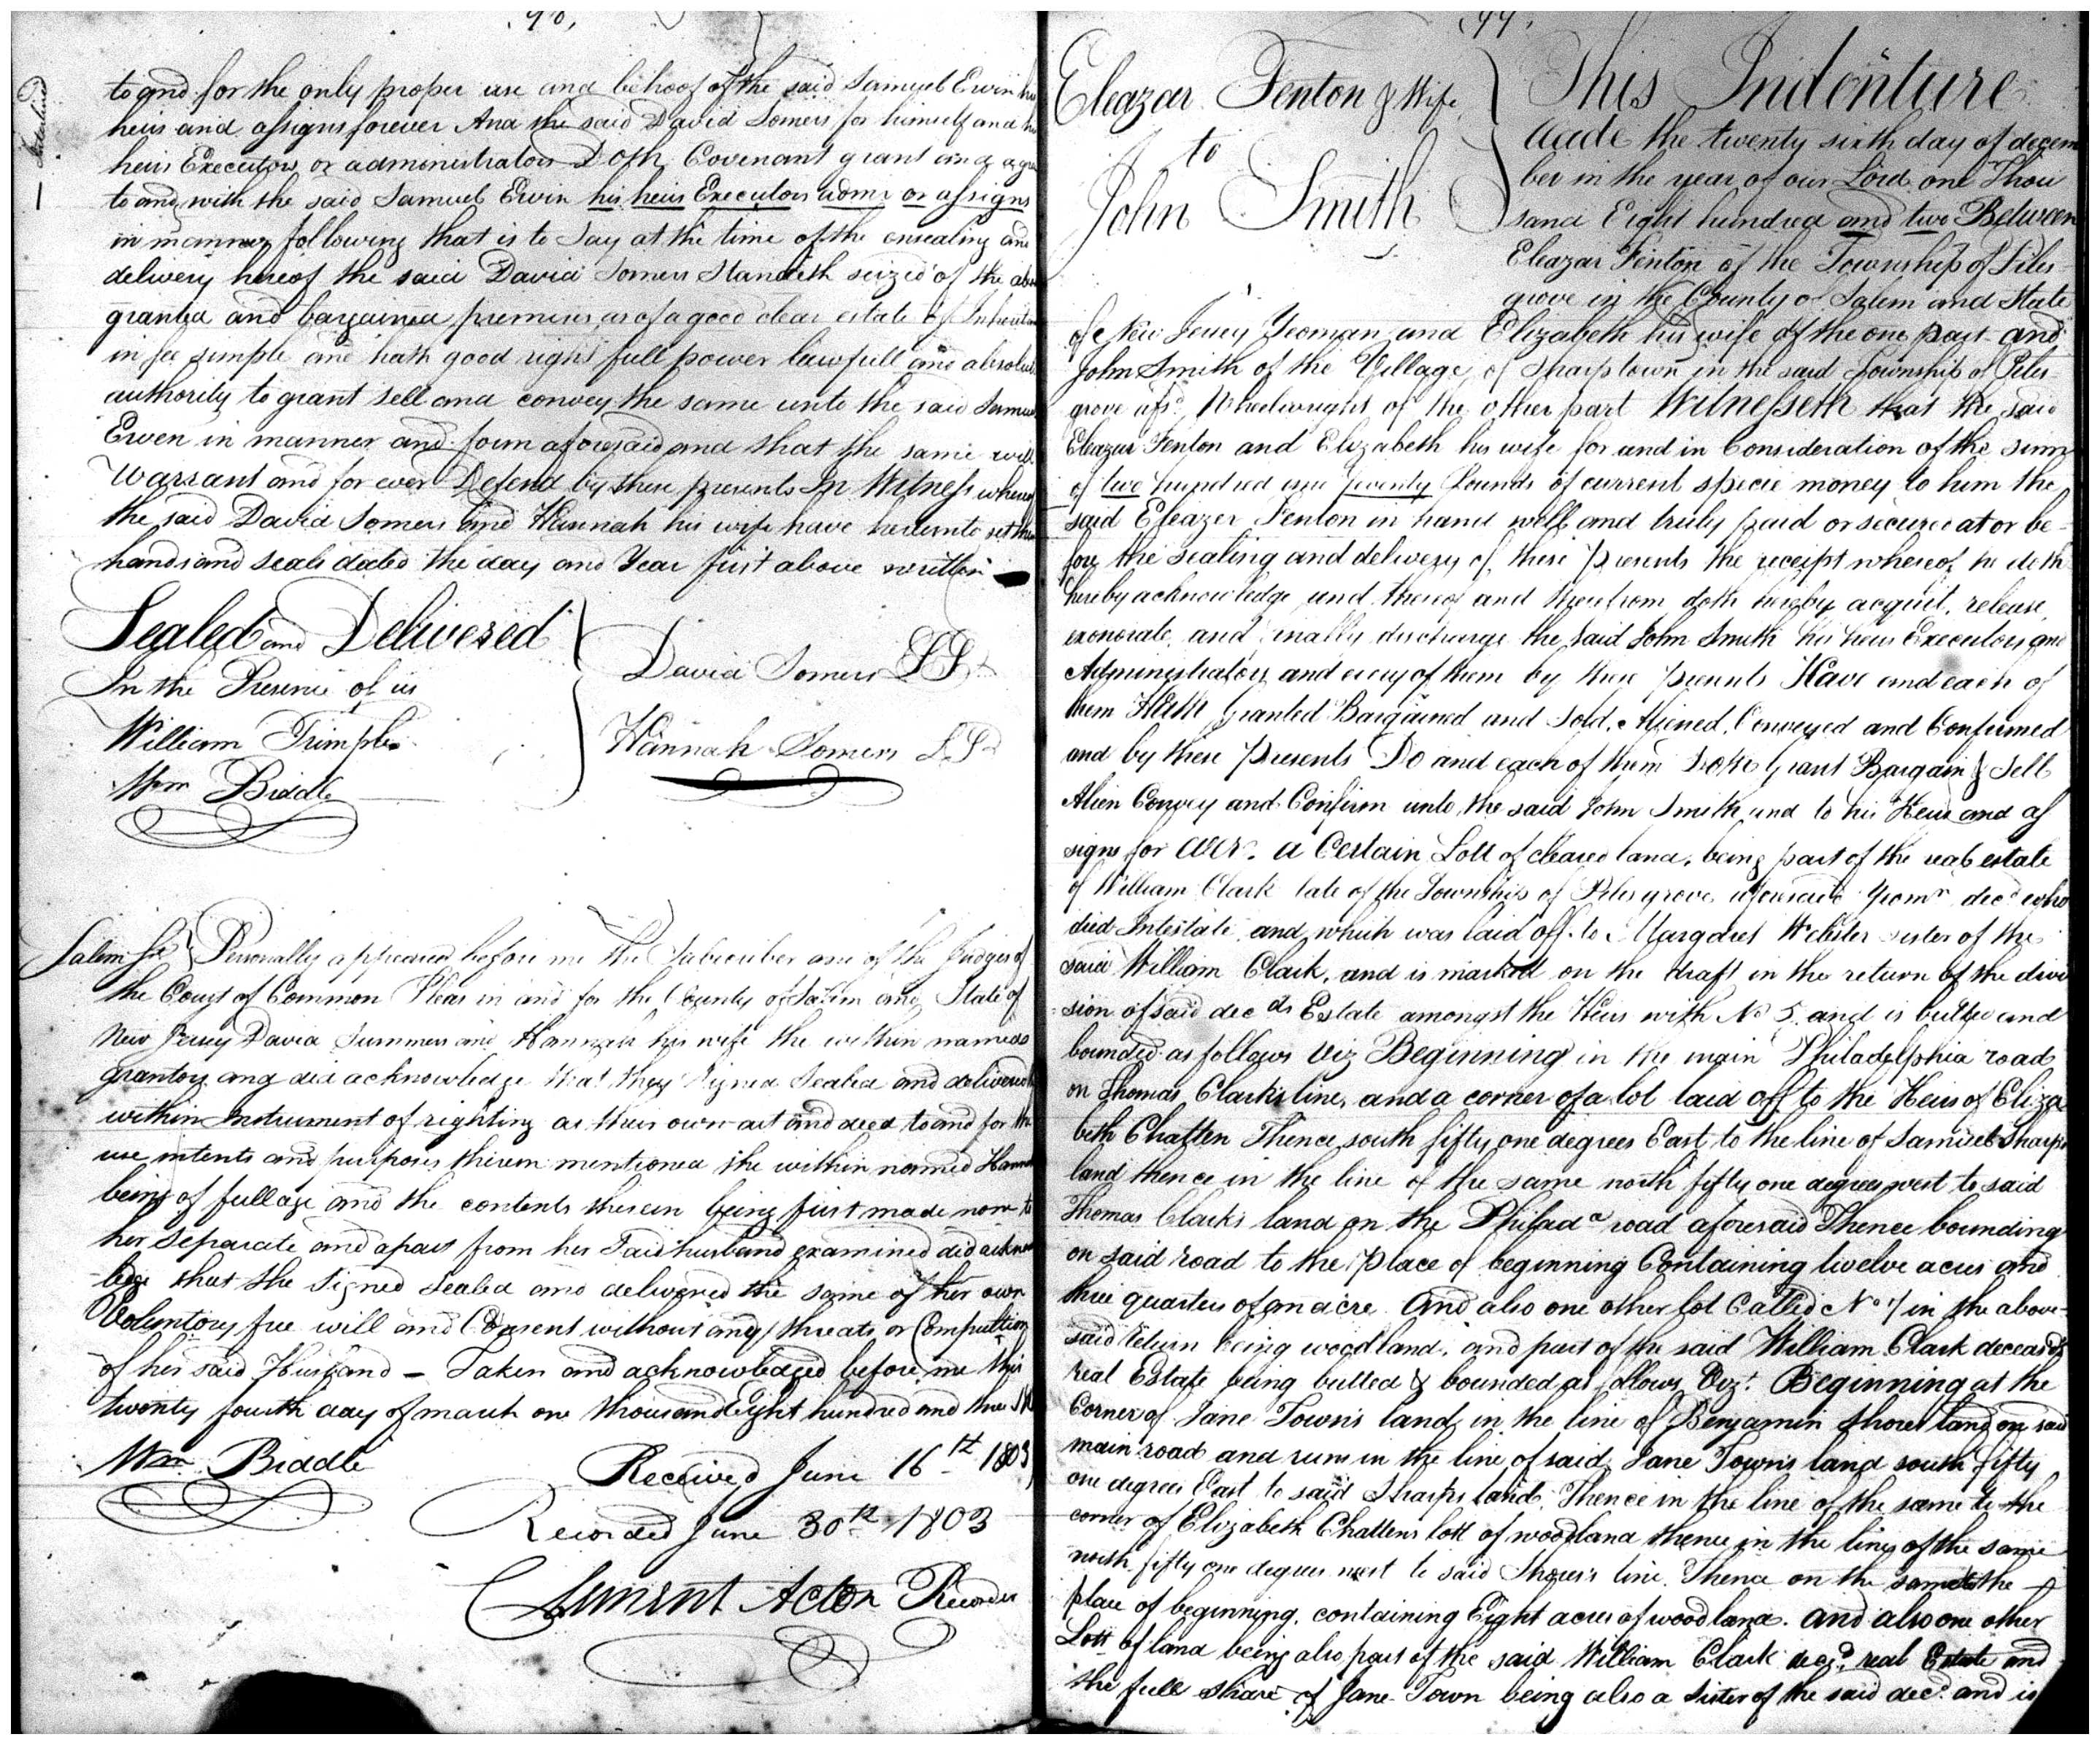 98,
to and for the only proper use and behoof of the said Samuel Ewin his
heirs and assigns forever And the said David Somers for himself and his
heirs Executors or administrators Doth Covenant grant and agree
to and with the said Samuel Ewin his heirs Executors adms or assigns
in manner following that is to Say at the time of the ensealing and
delivery hereof the said David Somers Standeth seized of the above
granted and bargained premises as of a good clear estate of Inherit
in fee simple and hath good right full power lawfull and absolute
authority to grant sell and convey the same unto the said Samuel
Ewen in manner and form aforesaid and that the same will
Warrant and for ever Defend by these presents In Witness whereof
the said David Somers and Hannah his wife have hereunto set their
hands and seals dated the day and Year first above written
Sealed and Delivered
In the Presence of us
William Trimple
Wm Biddle
David Somers LS
Hannah Somers LS
Salem Ss Personally appeared before me the Subscriber one of the Judges of
the Court of Common Pleas in and for the County of Salem and State of
New Jersey David Summers and Hannah his wife the within named
grantors and did acknowledge that they Signed Sealed and delivered
within Instrument of righting as their own act and deed to and for the
use intents and purposes therein mentioned she within named Hannah
being of full age and the contents therein being first made nown to
her Separate and apart from her Said husband examined did acknow
ledge that she Signed Sealed and delivered the same of her own
Voluntory free will and Consent without any threats or Compultion
of her said Husband – Taken and acknowledged before me this
twenty fourth day of march one thousand Eight hundred and three
Wm Biddle
Received June 16th 1803
Recorded June 30th 1803
Clement Acton Recorder
99,
Eleazar Fenton & Wife
to
John Smith
This Indenture
Made the twenty sixth day of decem
ber in the year of our Lord one Thou
sand Eight hundred and two Between
Eleazar Fenton of the Township of Piles
grove in the County of Salem and State
of New Jersey Yeoman and Elizabeth his wife of the one part and
John Smith of the Village of Sharptown in the said Township of Piles
grove afsd Wheelwright of the other part Witnesseth that the said
Eleazar Fenton and Elizabeth his wife for and in Consideration of the sum
of two hundred and seventy Pounds of current specie money to him the
said Eleazer Fenton in hand well and truly paid or secured at or be
fore the sealing and delivery of these presents the receipt whereof he doth
hereby acknowledge and thereof and therefrom doth hereby acquit, release,
exonorate and finally discharge the said John Smith his heirs Executors and
Administrators and every of them by these presents Have and each of
them Hath Granted Bargained and Sold, Aliened, Conveyed and Confirmed
and by these presents Do and each of them Doth Grant Bargain & Sell
Alien Convey and Confirm unto the said John Smith and to his Heirs and as
signs for ever. a Certain Lott of cleared land, being part of the real estate
of William Clark late of the Township of Pilesgrove aforesaid Yeomn decd who
died Intestate and which was laid off to Margaret Webster sister of the
said William Clark, and is marked on the draft in the return of the divi
sion of said decds Estate amongst the Heirs with No 5. and is butted and
bounded as follows Viz Beginning in the main Philadelphia road
on Thomas Clark's line, and a corner of a lot laid off to the Heirs of Eliza
beth Chatten Thence south fifty one degrees East to the line of Samuel Sharps
land thence in the line of the same north fifty one degrees west to said
Thomas Clark's land on the Philada road aforesaid Thence bounding
on said road to the place of beginning Containing twelve acres and
three quarters of an acre. And also one other lot Called No 7 in the above
said return being woodland, and part of the said William Clark deceas'ds
real Estate being butted & bounded as follows Vizt. Beginning at the
Corner of Jane Town's land, in the line of Benjamin Shours land on said
main road and runs in the line of said Jane Town's land south fifty
one degrees East to said Sharps land, Thence in the line of the same to the
corner of Elizabeth Chattens lott of woodland thence in the line of the same
north fifty one degrees west to said Shours's line. Thence on the same to the
place of beginning, containing Eight acres of woodland. and also one other
Lott of land being also part of the said William Clark decd. real Estate and
the full share of Jane Town being also a Sister of the said decd. and is